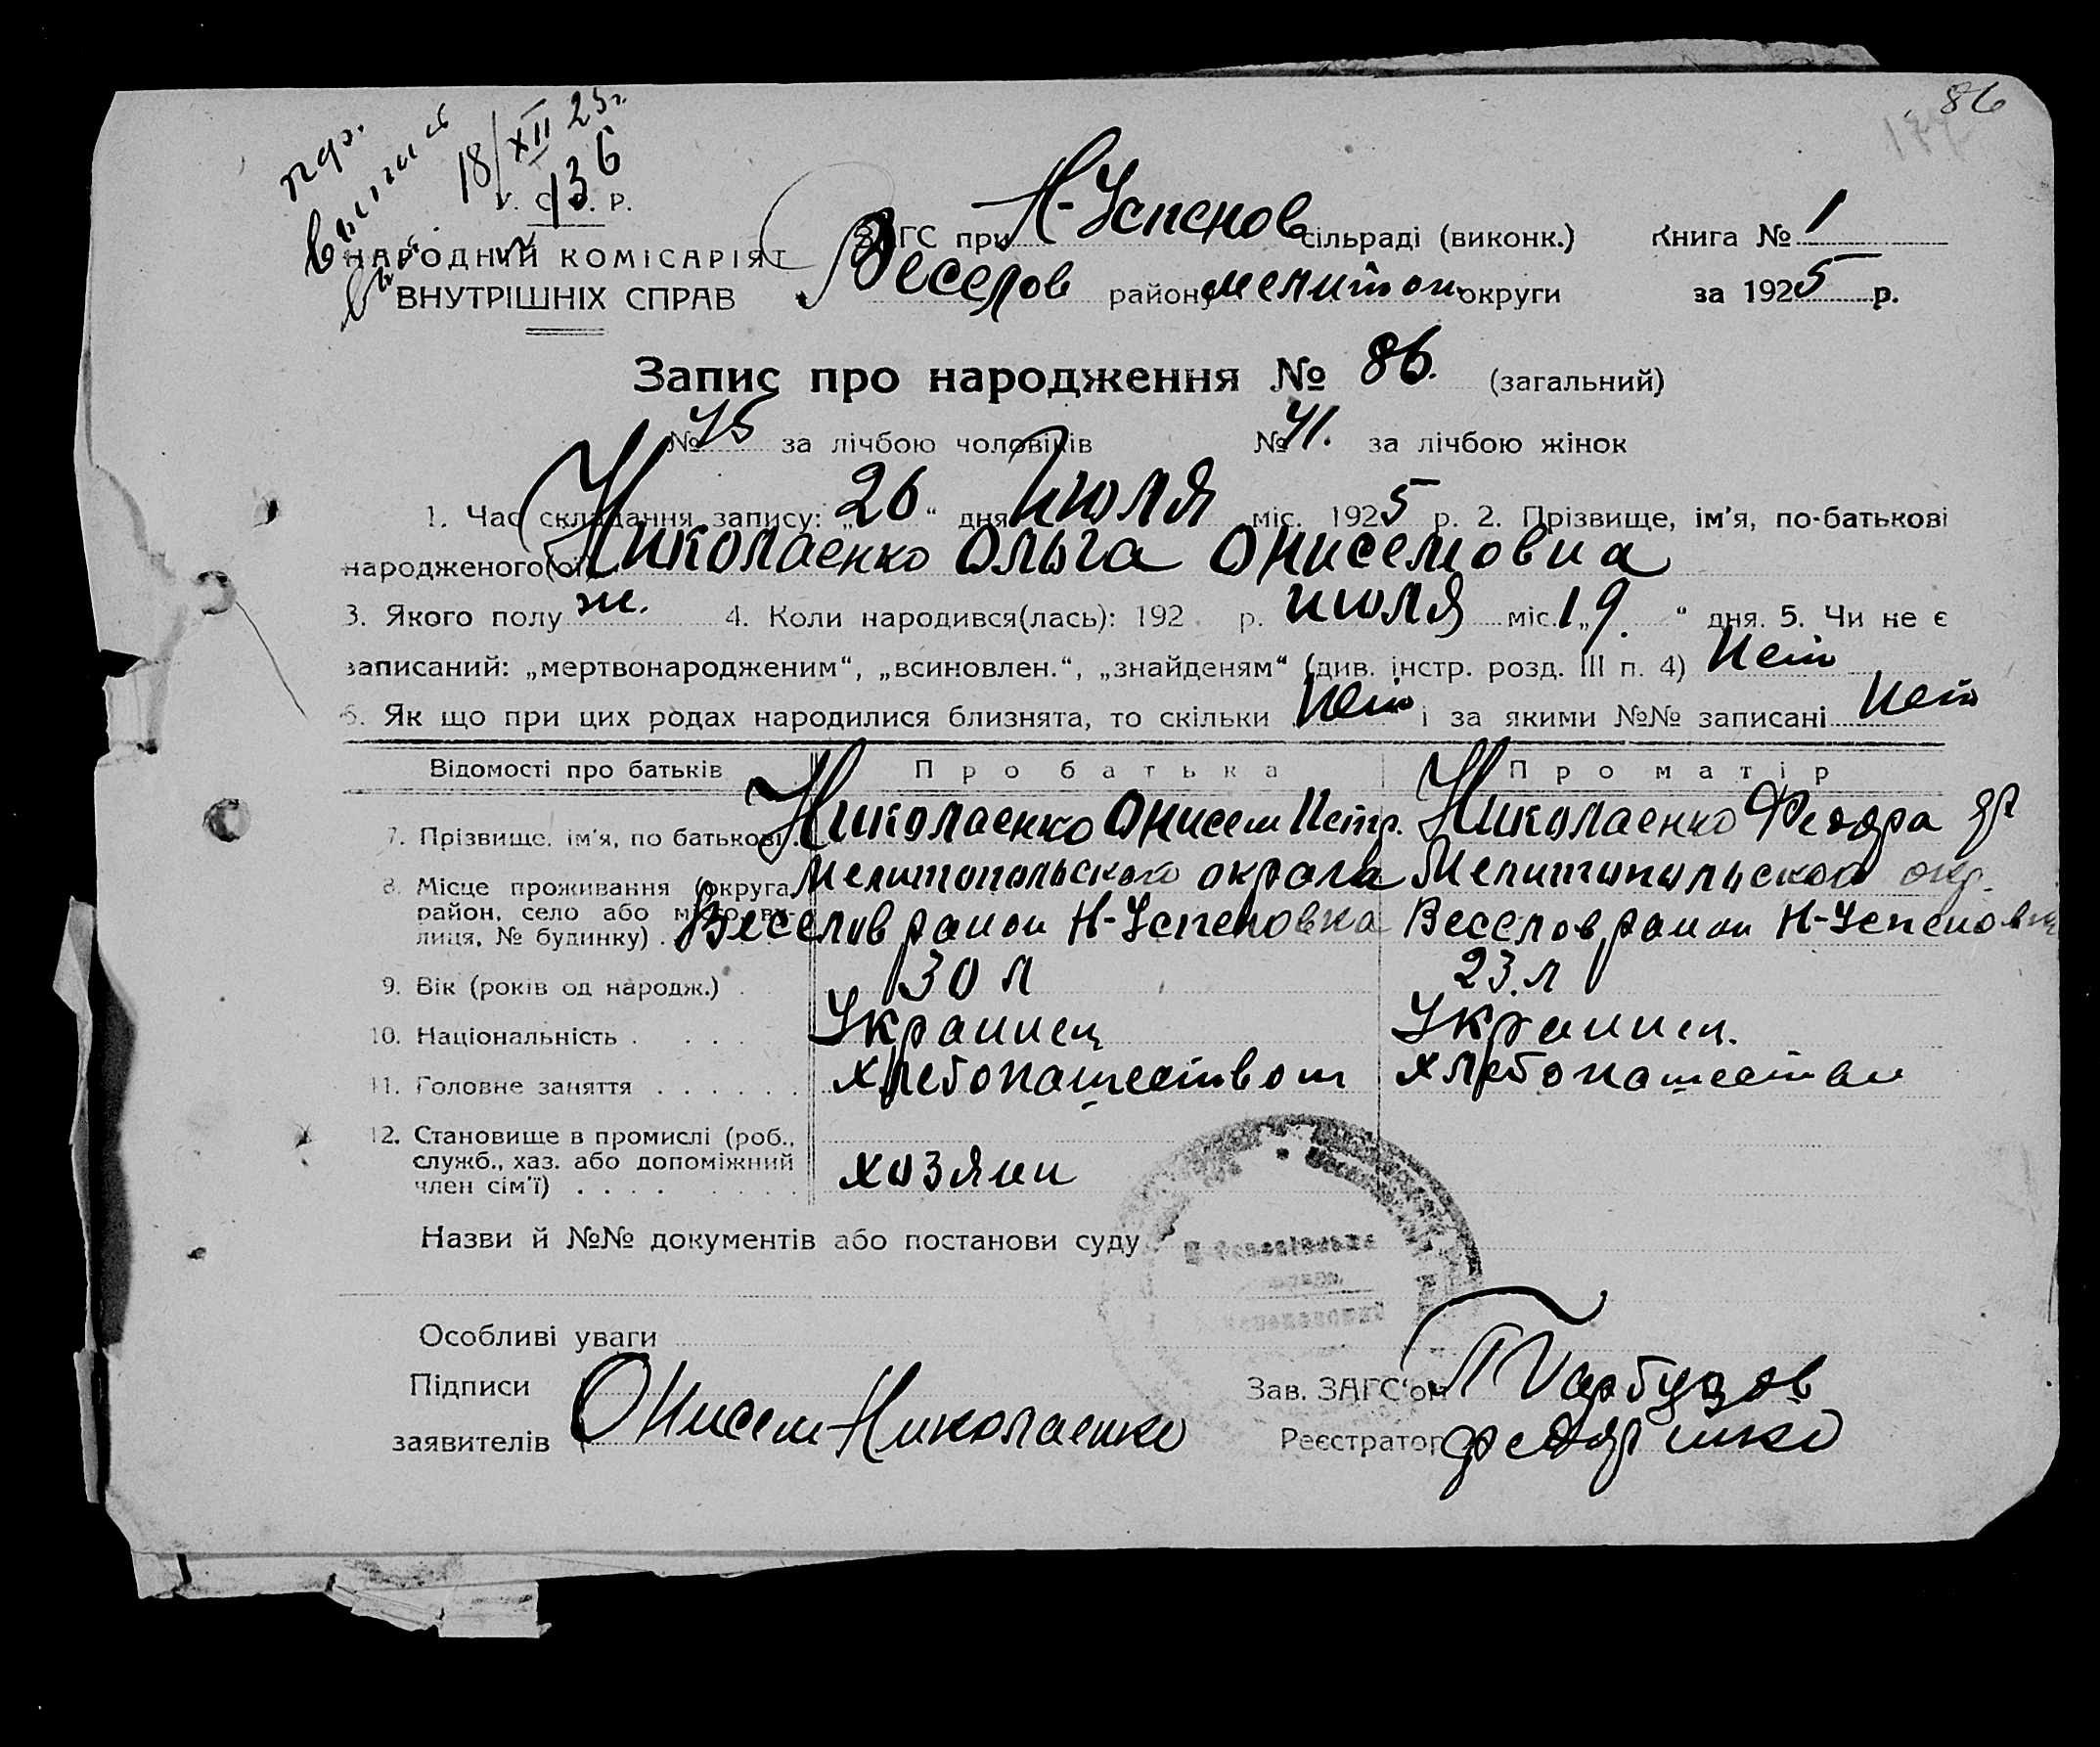 86
18/XII 25г.
136
У. С. Р. Р.
НАРОДНИЙ КОМІСАРІЯТ
ВНУТРІШНІХ СПРАВ
ЗАГС при Н-Успенов сільраді (виконк.) Книга № 1
Веселов району Мелитоп. округи за 1925 р.
Запис про народження № 86. (загальний)
№ 45 за лічбою чоловіків № 41. за лічбою жінок
1. Час складання запису: „26“ дня Июля міс. 1925 р. 2. Прізвище, ім'я, по-батькові
народженого(ої) Николаенко Ольга Онисемовна
3. Якого полу ж. 4. Коли народився(лась): 192 р. июля міс. „19.“ дня. 5. Чи не є
записаний: „мертвонародженим“, „всиновлен.“, „знайденям“ (див. інстр. розд. III п. 4) Нет
6. Як що при цих родах народилися близнята, то скільки Нет і за якими №№ записані Нет
Відомості про батьків Про батька Про матір
7. Прізвище, ім'я, по батькові. Николаенко Онисем Петр. Николаенко Федора
8. Місце проживання (округа, Мелитопольского округа Мелитопольской окр.
район, село або місто, ву-
лиця, № будинку) . Веселов район Н-Успеновка Веселов район Н-Успеновк
9. Вік (років од народж.) . 30 л 23. л
10. Національність . . . . Украинец Украинец.
11. Головне заняття . . . . . . хлебопашеством хлебопашеством
12. Становище в промислі (роб.,
служб., хаз. або допоміжний хозяин
член сім'ї) . . . . . . . .
Назви й №№ документів або постанови суду
Особливі уваги
Підписи Зав. ЗАГС'ом П Гарбузов
заявителів Онисем Николаенко Реєстратор Федяшко